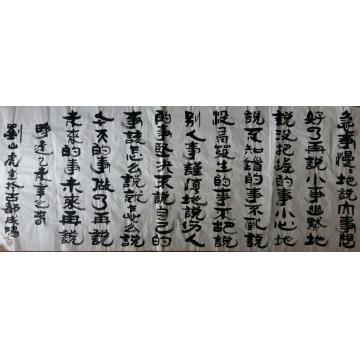 急事慢々地說大事想
好了再說小事幽默地
說没把握的事小心地
說不知錯的事不亂說
發生的事不胡說
别人事謹慎地說傷人
的事堅決不說自己的
事該怎么說就怎么說
今天的事做了再說
未來的事未來再說
乙未
劉山虎書於古都咸陽